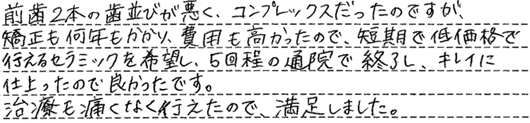 前歯2本の歯並びが悪く、コンプレックスだったのですが、
矯正も何年もかかり、費用も高かったので、短期で低価格で
行えるセラミックを希望し、5回程の通院で終了し、キレイに
仕上ったので良かったです。
治療も痛くなく行えたので、満足しました。